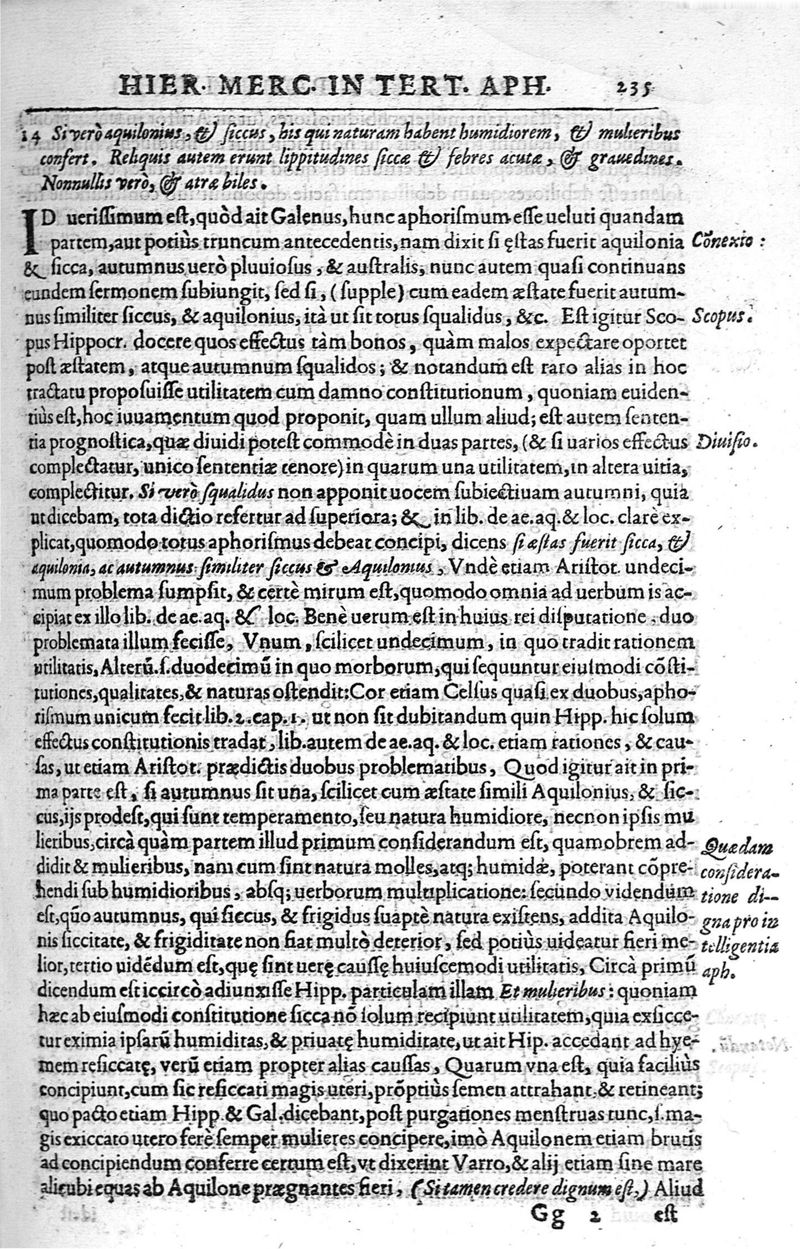 HIER. MERC. IN TERT. APH. 235
14 Si verò aquilonius, & siccus, his qui naturam habent humidiorem, & mulieribus
confert. Reliquis autem erunt lippitudines siccæ & febres acutæ, & gravedines.
Nonnullis verò, & atræ biles.
ID uerissimum est, quòd ait Galenus, hunc aphorismum esse ueluti quandam
partem, aut potiùs truncum antecedentis, nam dixit si ęstas fuerit aquilonia Cōnexio:
& sicca, autumnus uerò pluuiosus, & australis, nunc autem quasi continuans
eundem sermonem subiungit, sed si, (supple) cum eadem æstate fuerit autum-
nus similiter siccus, & aquilonius, ità ut sit totus squalidus, &c. Est igitur Sco- Scopus.
pus Hippocr. docere quos effectus tàm bonos, quàm malos expectare oportet
post æstatem, atque autumnum squalidos; & notandum est raro alias in hoc
tractatu proposuisse utilitatem cum damno constitutionum, quoniam euiden-
tiùs est, hoc iuuamentum quod proponit, quam ullum aliud; est autem senten-
tia prognostica, quæ diuidi potest commodè in duas partes, (& si uarios effectus Diuisio.
complectatur, unico sententiæ tenore) in quarum una utilitatem, in altera uitia,
complectitur. Si verò squalidus non apponit uocem subiectiuam autumni, quia
ut dicebam, tota dictio refertur ad superiora; & in lib. de ae. aq. & loc. clarè ex-
plicat, quomodo totus aphorismus debeat concipi, dicens si æstas fuerit sicca, &
aquilonia, ac autumnus similiter siccus & Aquilonius, Vndè etiam Aristot. undeci-
mum problema sumpsit, & certè mirum est, quomodo omnia ad uerbum is ac-
cipiat ex illo lib. de ae. aq. & loc. Benè uerum est in huius rei disputatione, duo
problemata illum fecisse, Vnum, scilicet undecimum, in quo tradit rationem
utilitatis, Alterū. s. duodecimū in quo morborum, qui sequuntur eiusmodi cōsti-
tutiones, qualitates, & naturas ostendit: Cor etiam Celsus quasi ex duobus, apho-
rismum unicum fecit lib. 2. cap. 1. ut non sit dubitandum quin Hipp. hic solum
effectus constitutionis tradat, lib. autem de ae. aq. & loc. etiam rationes, & cau-
sas, ut etiam Aristot. prædictis duobus problematibus, Quod igitur ait in pri-
ma parte est, si autumnus sit una, scilicet cum æstate simili Aquilonius, & sic-
cus, ijs prodest, qui sunt temperamento, seu natura humidiore, necnon ipsis mu
lieribus, circà quàm partem illud primum considerandum est, quamobrem ad- Quædam
didit & mulieribus, nam cum sint natura molles, atq; humidæ, poterant cōpre- considera-
hendi sub humidioribus, absq; uerborum multiplicatione: secundo videndum tione di-
est, quō autumnus, qui siccus, & frigidus suaptè natura existens, addita Aquilo- gna pro in
nis siccitate, & frigiditate non fiat multò deterior, sed potiùs uideatur fieri me- telligentia
lior, tertio uidēdum est, quę sint uerę caussę huiuscemodi utilitatis, Circà primū aph.
dicendum est iccircò adiunxisse Hipp. particulam illam Et mulieribus: quoniam
hæc ab eiusmodi constitutione sicca nō solum recipiunt utilitatem, quia exsicce-
tur eximia ipsarū humiditas, & priuatę humiditate, ut ait Hip. accedant ad hye-
mem reficcatę, verū etiam propter alias caussas, Quarum vna est, quia faciliùs
concipiunt, cum sic resiccati magis uteri, prōptiùs semen attrahant & retineant;
quo pacto etiam Hipp. & Gal. dicebant, post purgationes menstruas tunc, s. ma-
gis exiccato utero ferè semper mulieres concipere, imò Aquilonem etiam brutis
ad concipiendum conferre certum est, vt dixerint Varro, & alij etiam sine mare
alicubi equas ab Aquilone prægnantes fieri, (Si tamen credere dignum est,) Aliud
Gg 2 est